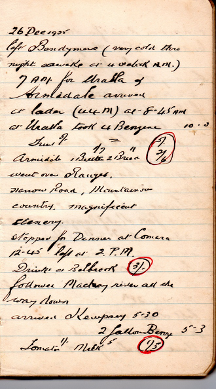 26 Dec 1935
left Bendymere (very cold this
night awake at 4 o'clock A.M.)
7 AM for Uralla &
Armidale arrived
at latter (44 M) at 8-45 AM
at Uralla took 4 Benzine 10-0
Armidale Butter & Bread 2/6
went over Ranges.
narrow Road, Mountainous
country, magnificent
scenery.
stopped for Dinner at Comara
12-45 left at 2 P.M.
Drinks at Bellbrook 3/-
followed Macleay river all the
way down
arrived Kempsey 5-30
2 Gallon Benzine 5-3
Tomato Milk 1/5